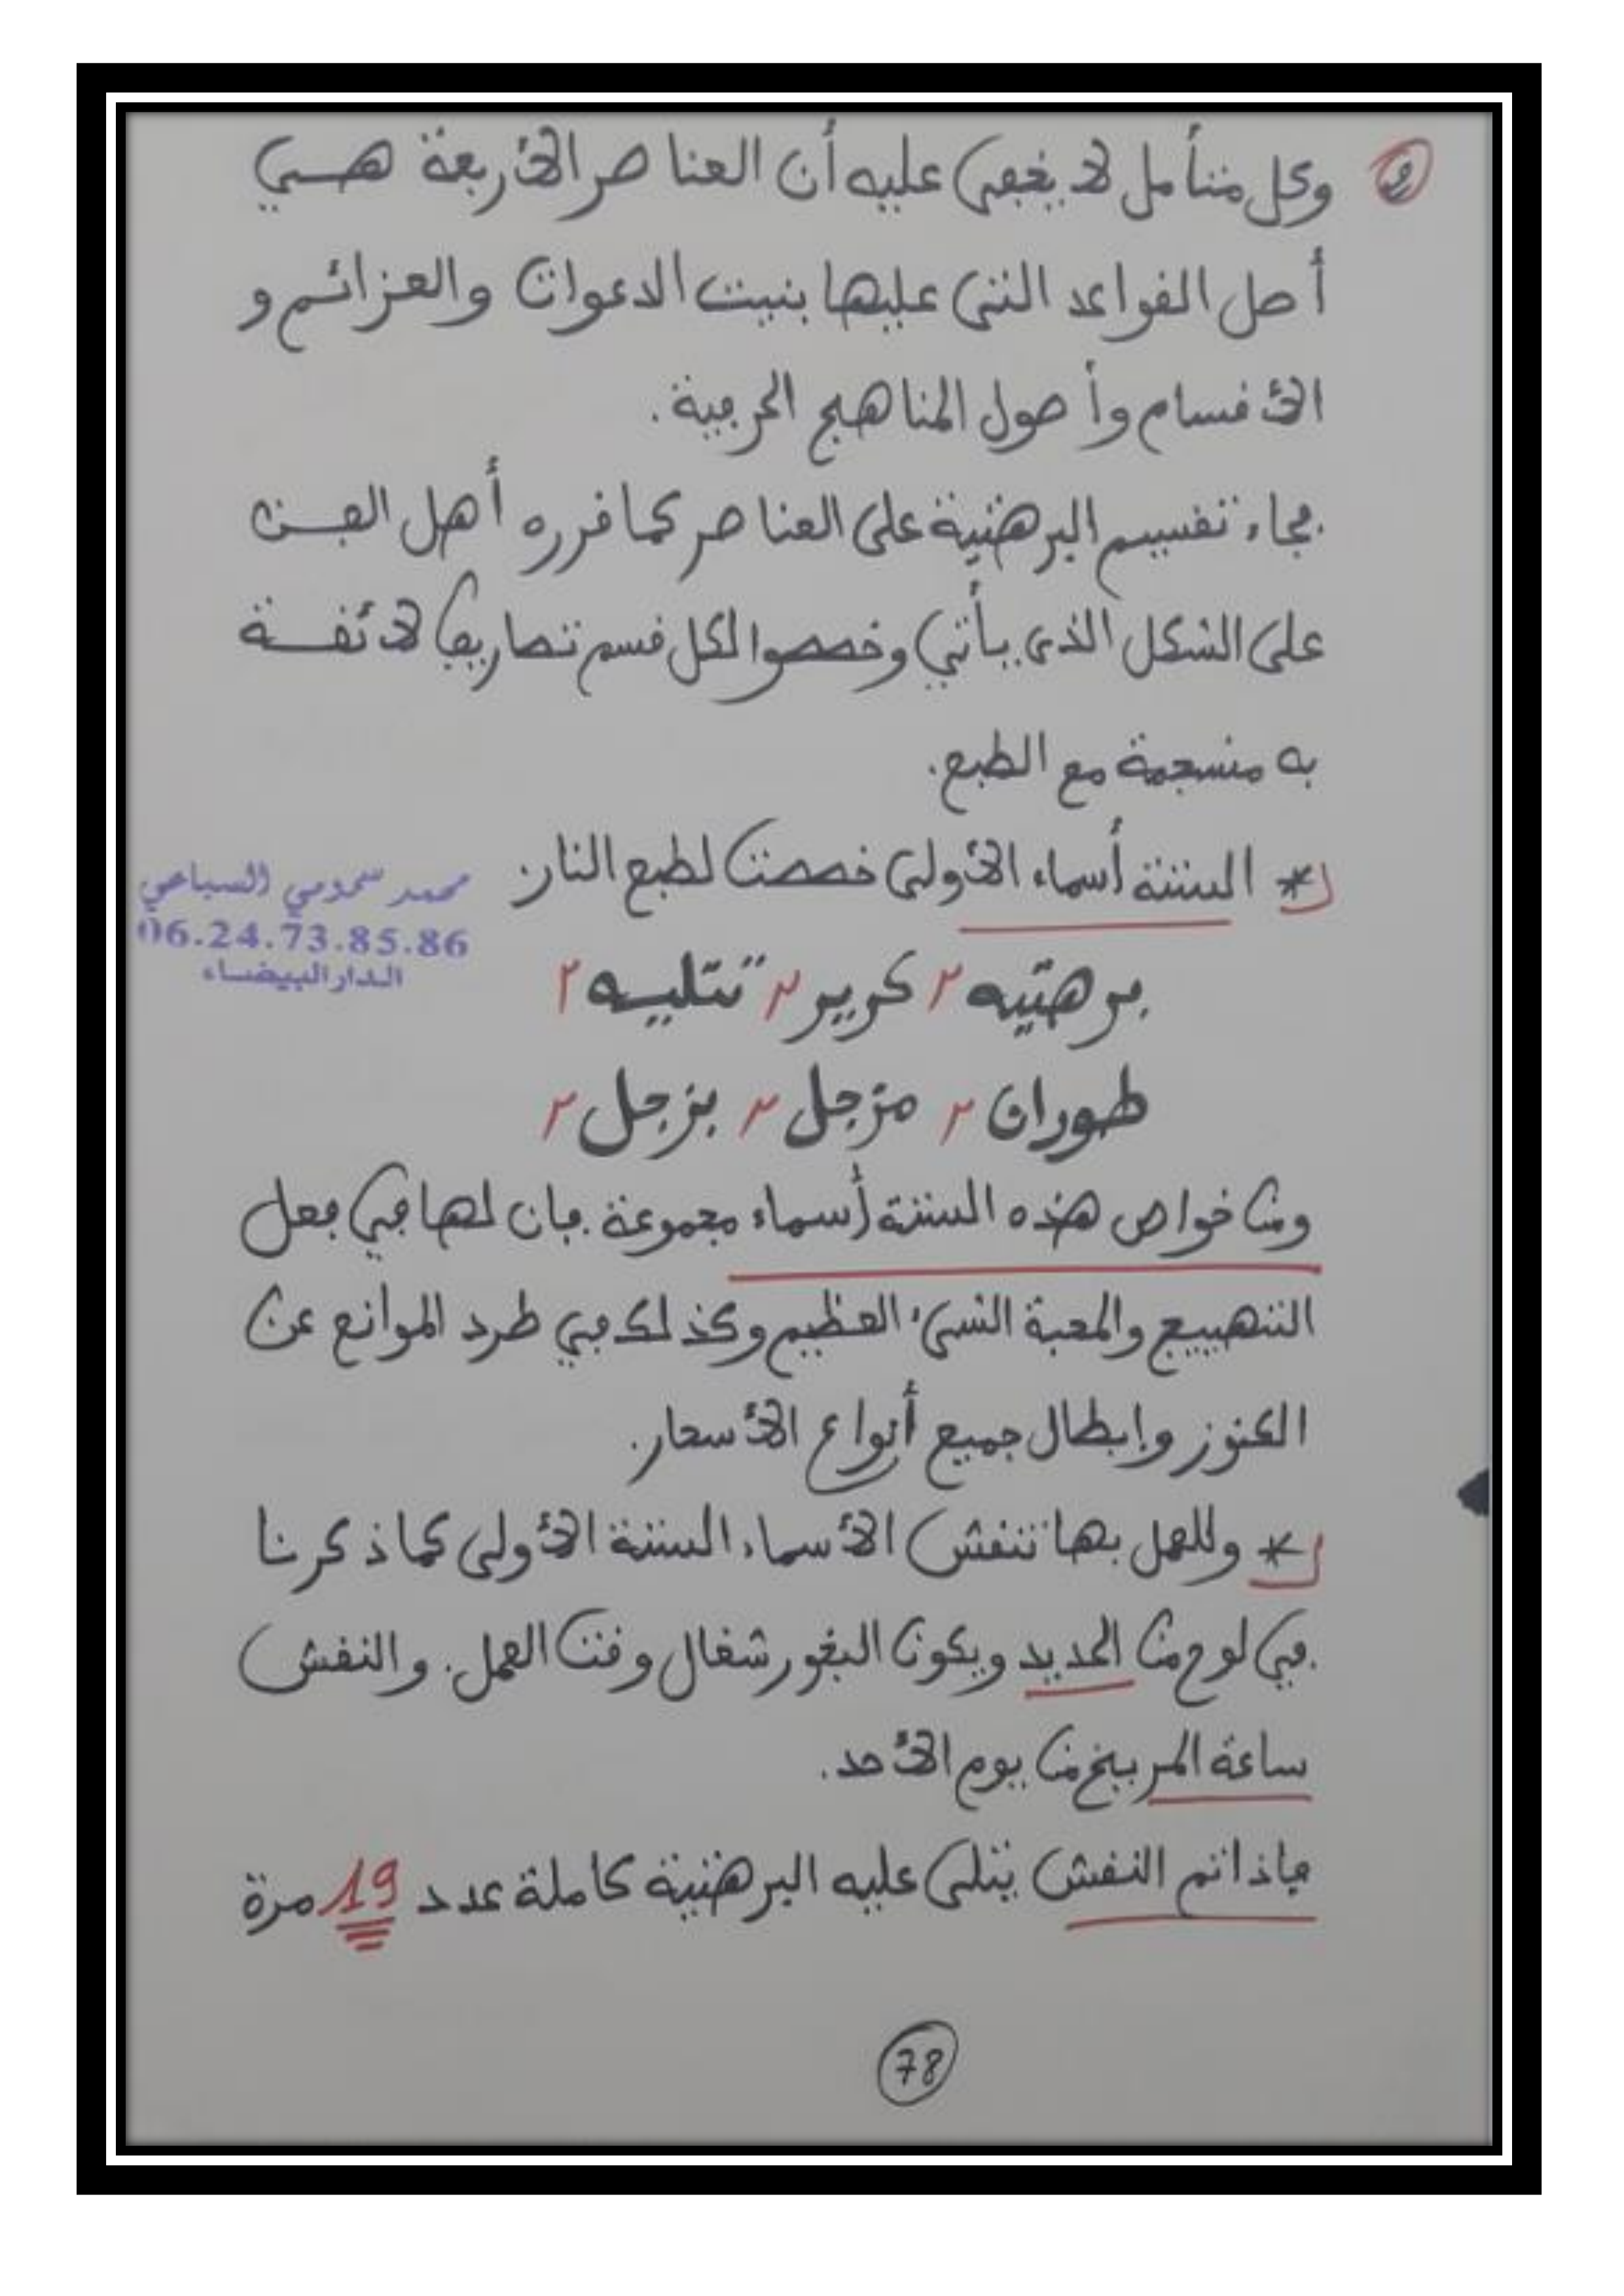 وكل متأمل لا يخفى عليه أن العناصر الأربعة هـــي
أصل القواعد التي عليها بنيت الدعوات والعزائم و
الأقسام وأصول المناهج الحرفية .
فجاء تقسيم البرهتية على العناصر كما قرره أهل الفـــن
على الشكل الذي يأتي وخصصوا لكل قسم تصاريف لائقـــة
به منسجمة مع الطبع .
* الستة أسماء الأولى خصصت لطبع النار
محمد سمومي السباعي
06.24.73.85.86
الدار البيضاء
برهتيه ٢ كرير ٢ تتليه ٢
طوران ٢ مزجل ٢ بزجل ٢
ومن خواص هذه الستة أسماء مجموعة فإن لها في فعل
التهييج والمحبة الشيء العظيم وكذلك في طرد الموانع عن
الكنوز وإبطال جميع أنواع الأسحار .
* وللعمل بها تنقش الأسماء الستة الأولى كما ذكرنا
في لوح من الحديد ويكون البخور شغال وقت العمل . والنقش
ساعة المريخ من يوم الأحد .
فإذا تم النقش يتلى عليه البرهتية كاملة عدد 19 مرة
78